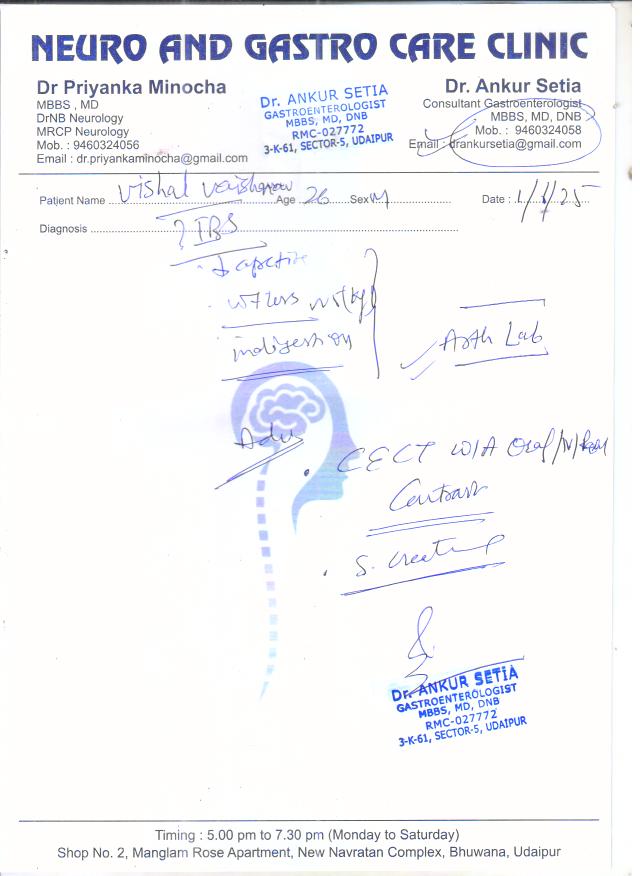 NEURO AND GASTRO CARE CLINIC
Dr Priyanka Minocha
MBBS , MD
DrNB Neurology
MRCP Neurology
Mob. : 9460324056
Email : dr.priyankaminocha@gmail.com
Dr. ANKUR SETIA
GASTROENTEROLOGIST
MBBS, MD, DNB
RMC-027772
3-K-61, SECTOR-5, UDAIPUR
Dr. Ankur Setia
Consultant Gastroenterologist
MBBS, MD, DNB
Mob. : 9460324058
Email : drankursetia@gmail.com
Patient Name Vishal Age 26 Sex M Date : 1/ /25
Diagnosis ? IBS
↓ apetite
wt loss
indigestion
Arth Lab
Adv
CECT W/A Oral/IV/
Contrast
S. Creatine
Dr. ANKUR SETIA
GASTROENTEROLOGIST
MBBS, MD, DNB
RMC-027772
3-K-61, SECTOR-5, UDAIPUR
Timing : 5.00 pm to 7.30 pm (Monday to Saturday)
Shop No. 2, Manglam Rose Apartment, New Navratan Complex, Bhuwana, Udaipur